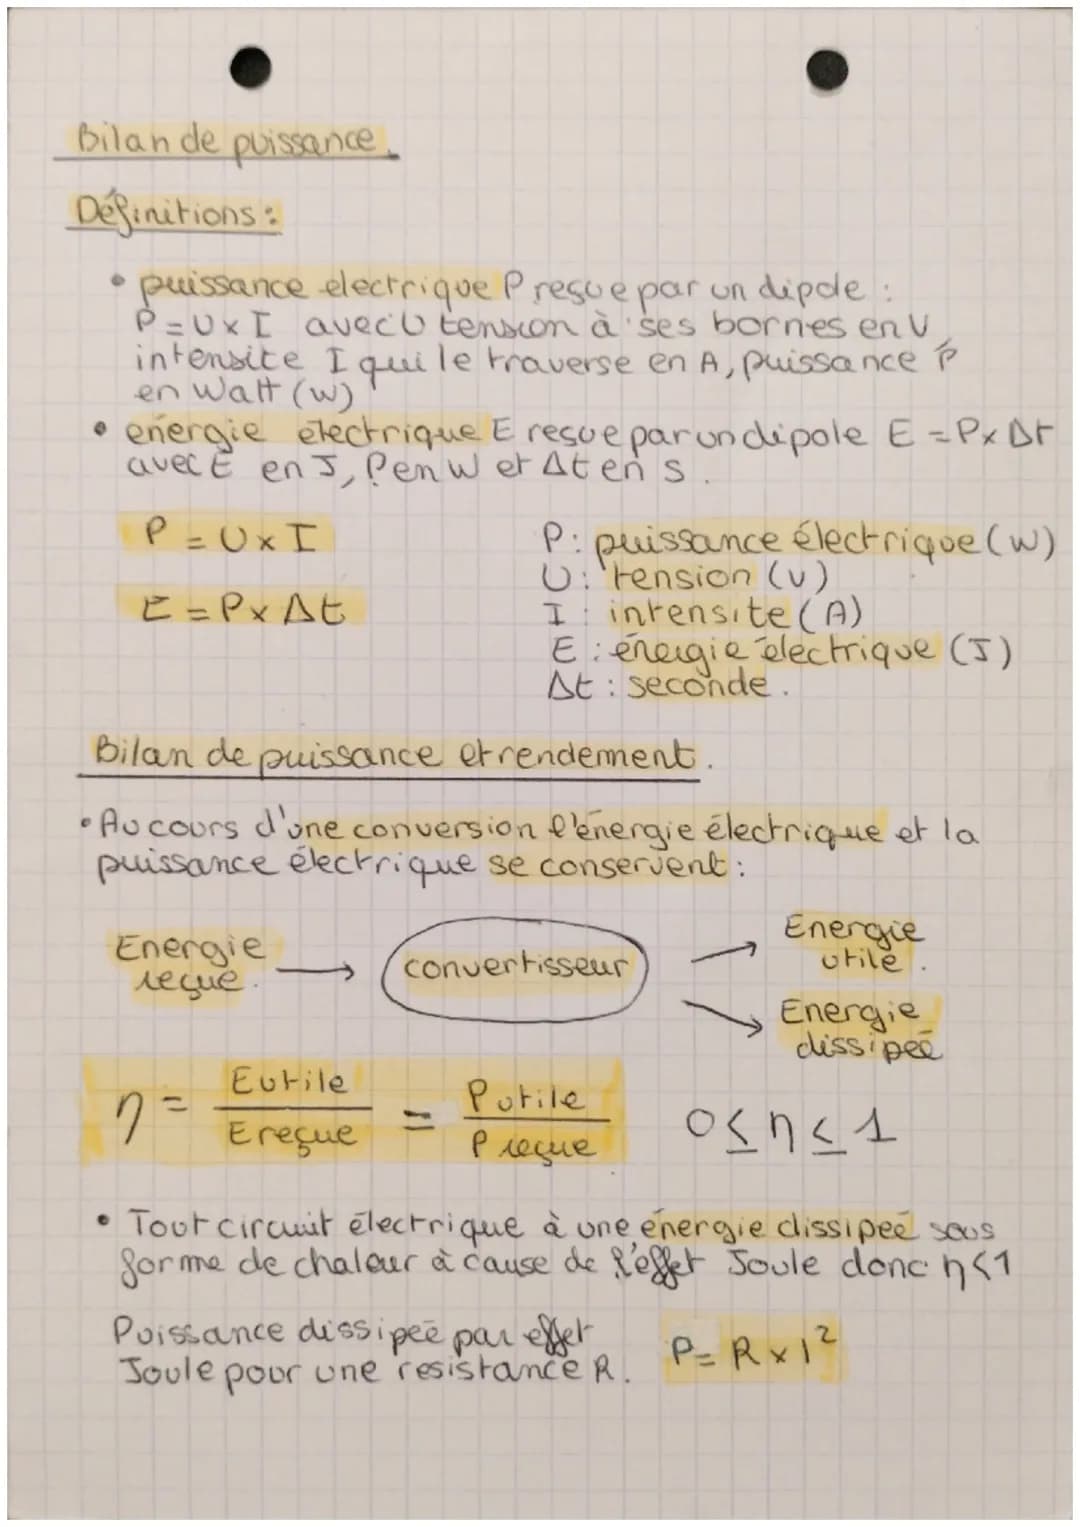 Bilan de puissance.
Définitions :
• puissance electrique P reçue par un dipole :
P = U x I avec U tension à ses bornes en V,
intensite I qui le traverse en A, puissance P
en Watt (w)
• energie electrique E reçue par un dipole E = P x Δt
avec E en J, P en W et Δt en s.
P = U x I
E = P x Δt
P : puissance électrique (w)
U : tension (v)
I : intensite (A)
E : énergie électrique (J)
Δt : seconde.
Bilan de puissance et rendement.
• Au cours d'une conversion l'énergie électrique et la
puissance électrique se conservent :
Energie
reçue.
convertisseur
Energie
utile.
Energie
dissipeé
η = Eutile / E reçue = Putile / P reçue 0 ≤ η ≤ 1
• Tout circuit électrique à une énergie dissipeé sous
forme de chaleur à cause de l'effet Joule donc η < 1
Puissance dissipeé par effet
Joule pour une resistance R.
P = R x I²